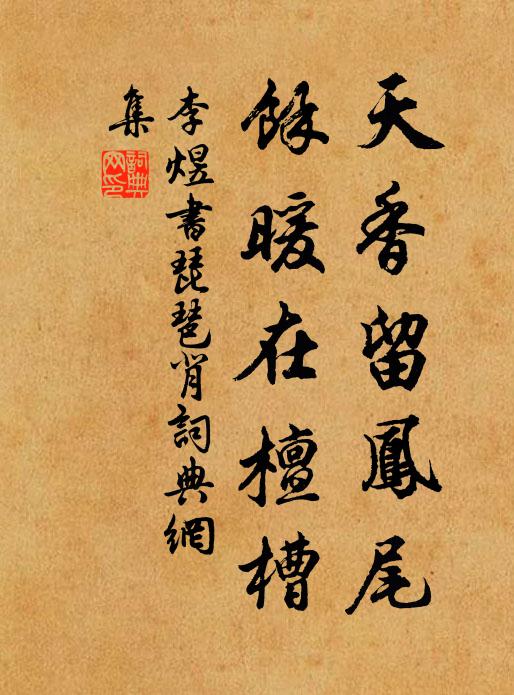 天香留鳳尾
餘暖在檀槽
李煜書琵琶背詞典網
集
詞典網印